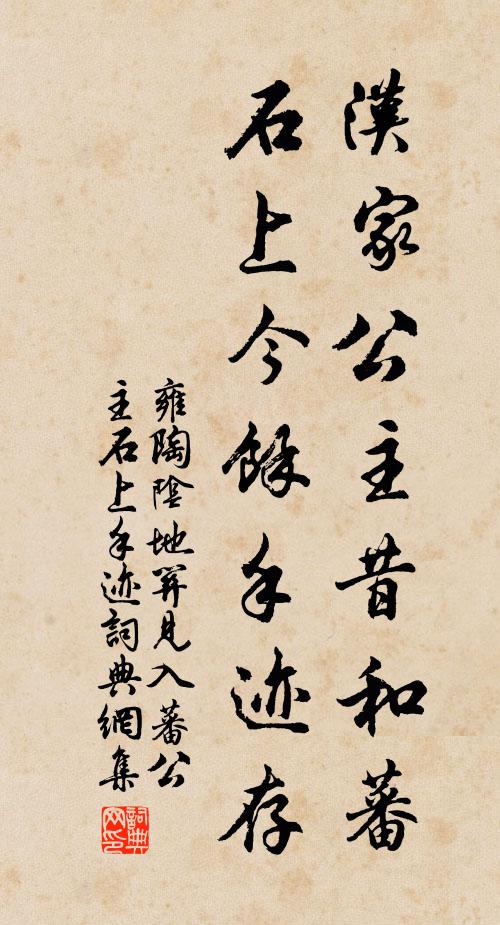 漢家公主昔和蕃
石上今餘手迹存
雍陶陰地關見入蕃公
主石上手迹詞典網集
詞典網印